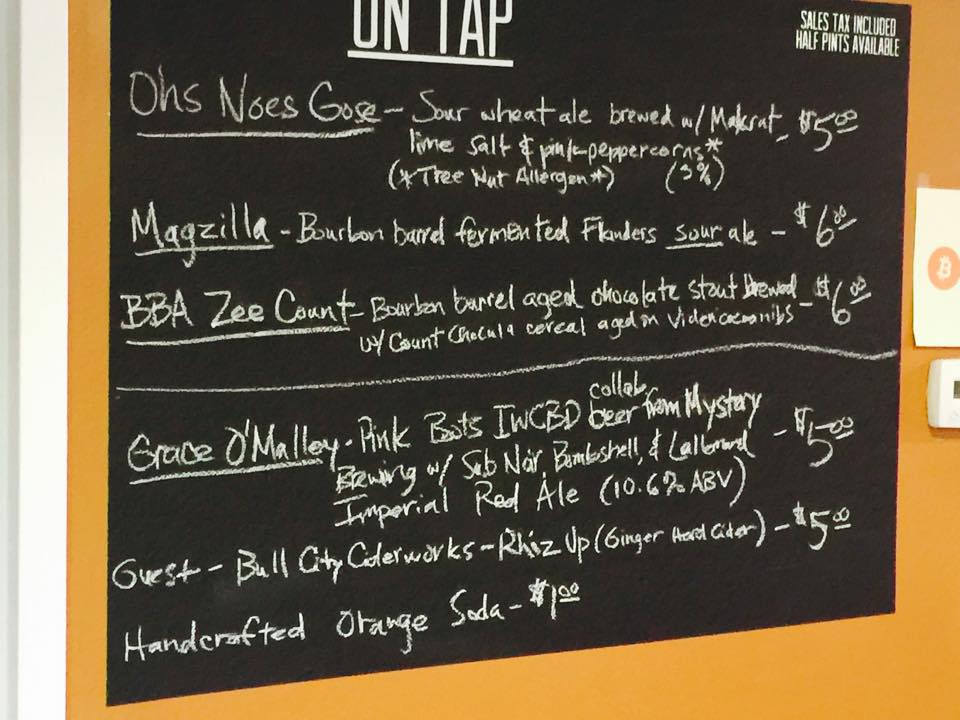 ON TAP
SALES TAX INCLUDED
HALF PINTS AVAILABLE
Ohs Noes Gose - Sour wheat ale brewed w/ Makrat - $5.00
lime salt & pink peppercorns*
(*Tree Nut Allergen*) (3%)
Magzilla - Bourbon barrel fermented Flanders sour ale - $6.00
BBA Zee Count - Bourbon barrel aged chocolate stout brewed - $6.00
w/ Count Chocula cereal aged on
collab
Grace O'Malley - Pink Boots IWCBD beer from Mystery - $5.00
Brewing w/ Sub Noir, Bombshell, &
Imperial Red Ale (10.6% ABV)
Guest - Bull City Ciderworks - Rhiz Up (Ginger Hard Cider) - $5.00
Handcrafted Orange Soda - $1.00